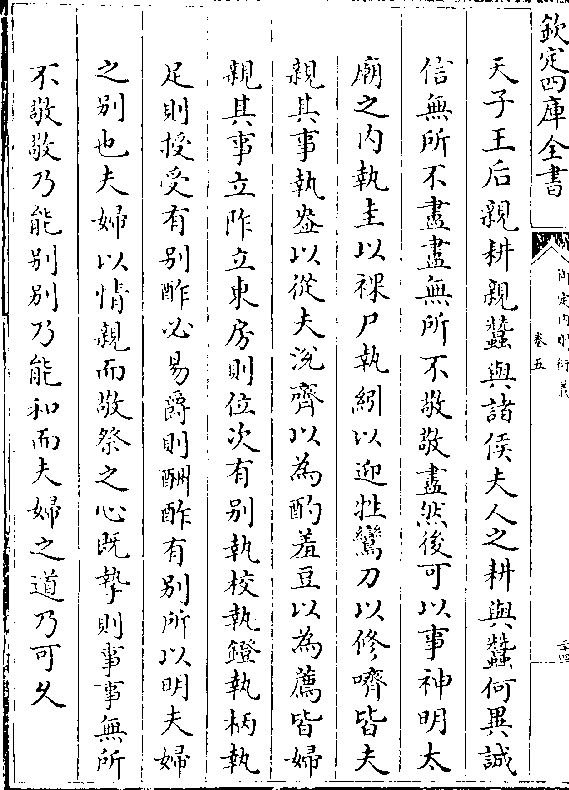 欽定四庫全書
御定內則衍義
卷五
二十四
天子王后親耕親蠶與諸侯夫人之耕與蠶何異誠
信無所不盡盡無所不敬敬盡然後可以事神明太
廟之内執圭以祼尸執紖以迎牲鸞刀以修嚌皆夫
親其事執盎以從夫涗齊以為酌羞豆以為薦皆婦
親其事立阼立東房則位次有别執校執鐙執柄執
足則授受有别酢必易爵則酬酢有别所以明夫婦
之别也夫婦以情親而敬祭之心既摯則事事無所
不敬敬乃能别别乃能和而夫婦之道乃可久